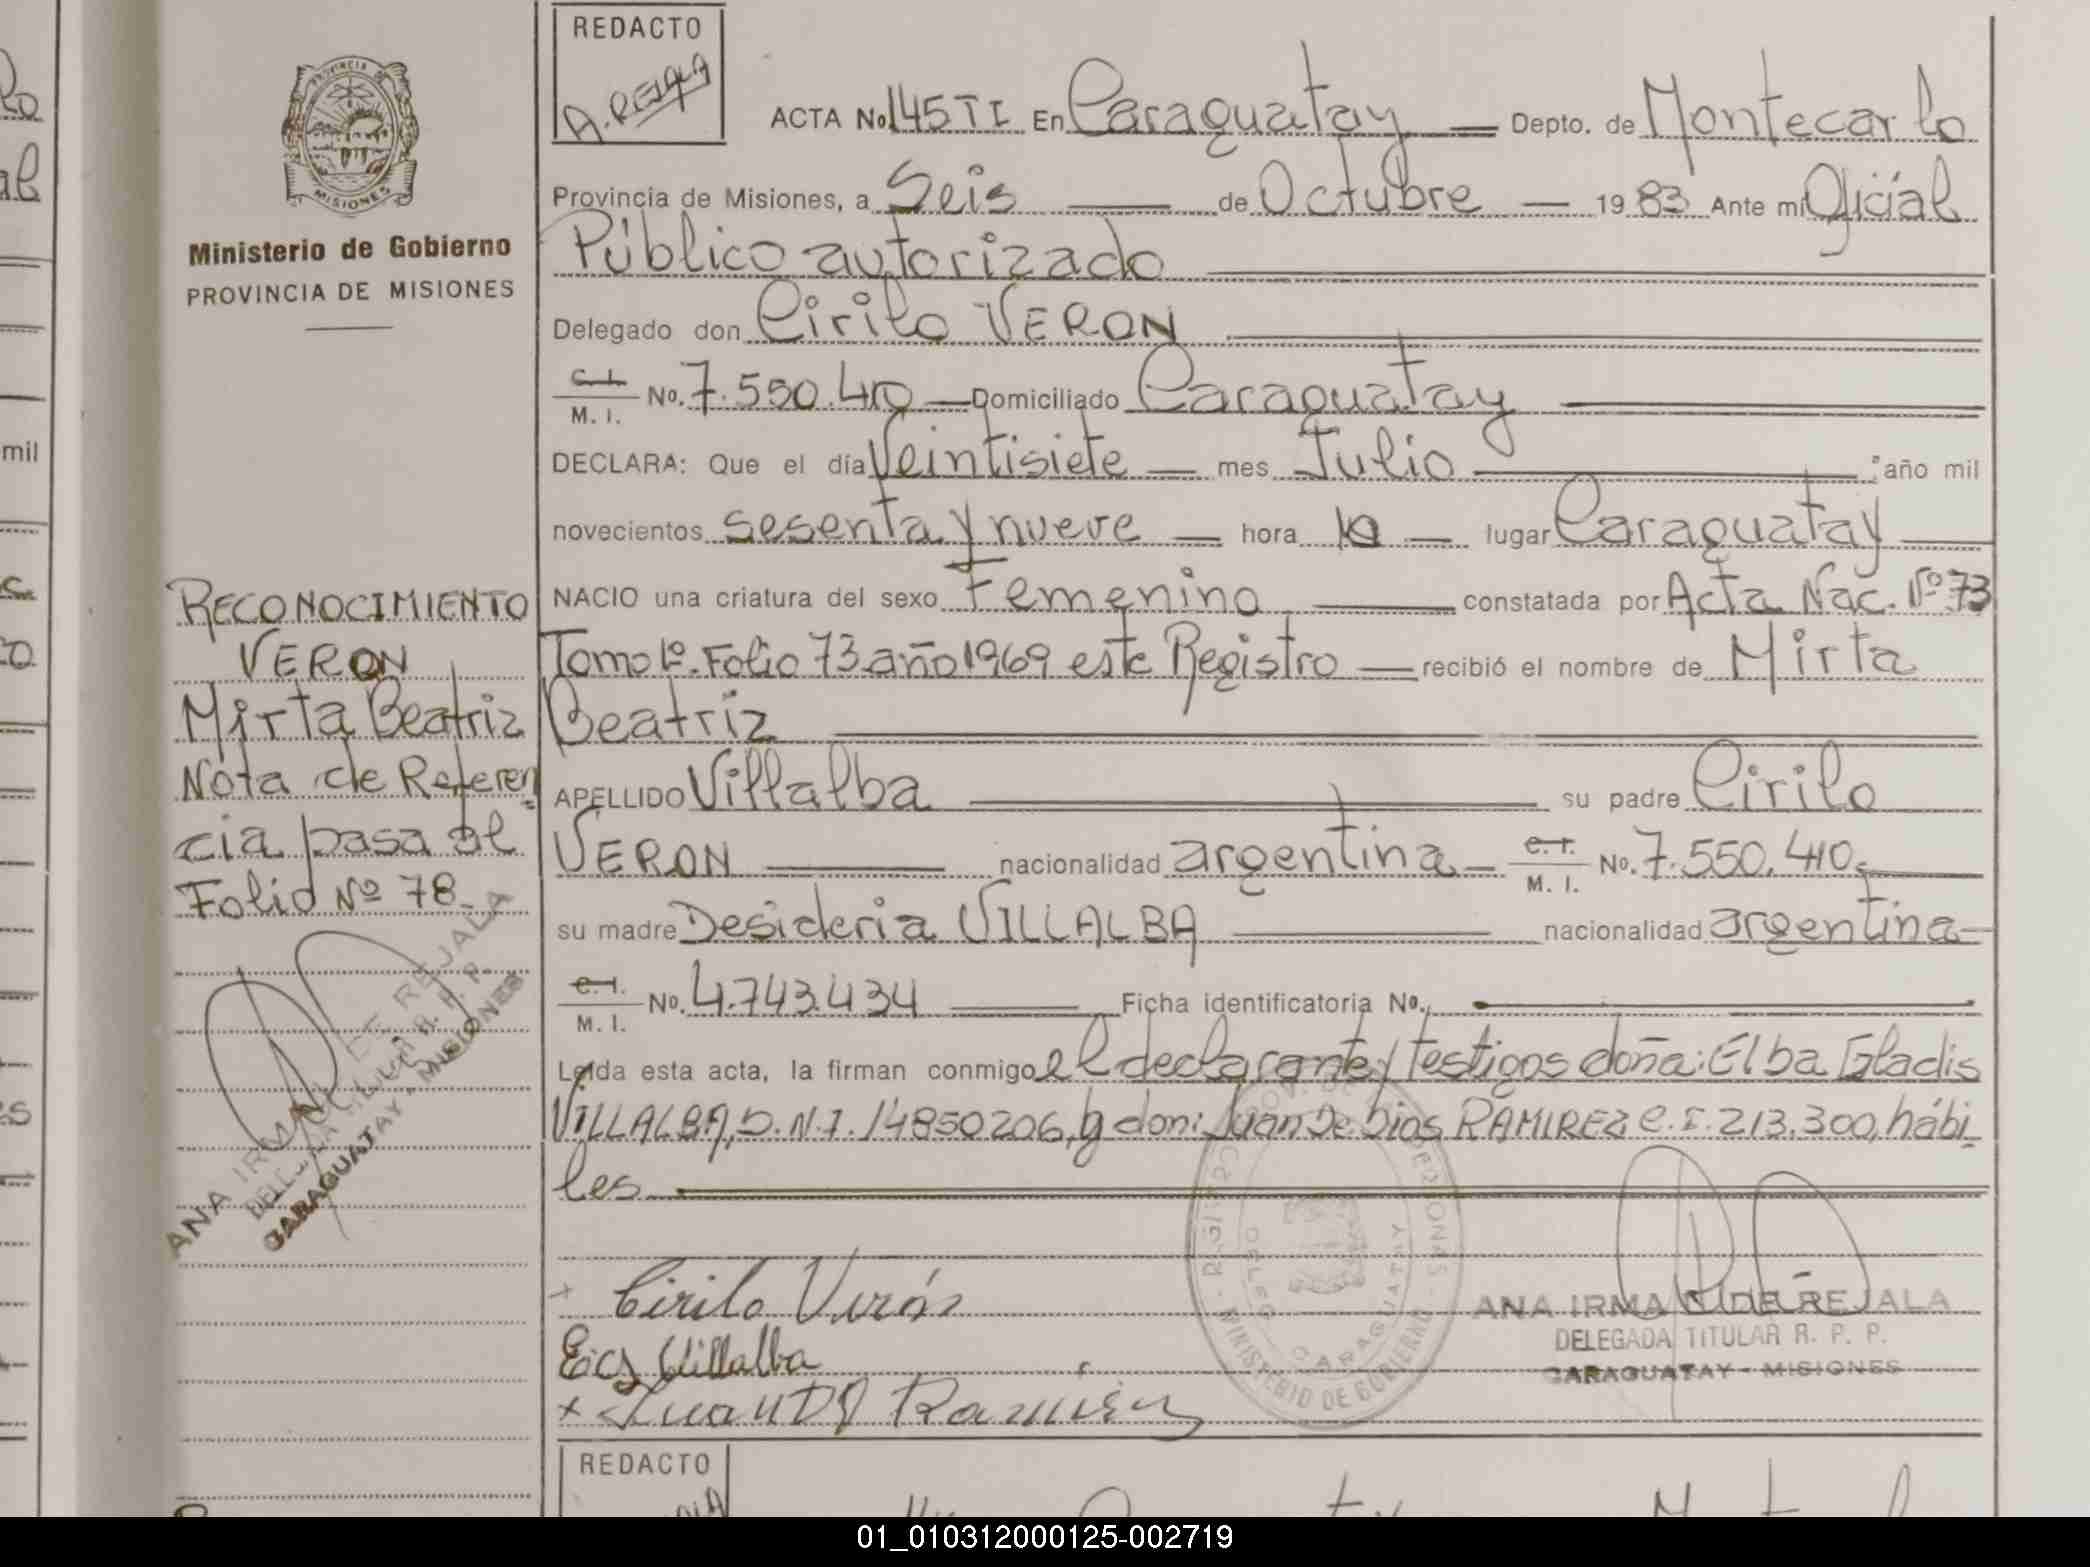 REDACTO
A. REJALA
ACTA No. 145 TI En Caraguatay Depto. de Montecarlo
Provincia de Misiones, a Seis de Octubre 1983 Ante mi Oficial
Público autorizado
Delegado don Cirilo VERON
C.I. M. I. No. 7.550.410 Domiciliado Caraguatay
DECLARA: Que el día Veintisiete mes Julio año mil
novecientos sesenta y nueve hora 10 lugar Caraguatay
NACIO una criatura del sexo Femenino constatada por Acta Nac. Nº 73
Tomo 1º. Folio 73 año 1969 este Registro recibió el nombre de Mirta
Beatriz
APELLIDO Villalba su padre Cirilo
VERON nacionalidad argentina C.I. M. I. No. 7.550.410.
su madre Desideria VILLALBA nacionalidad argentina
C.I. M. I. No. 4.743.434 Ficha identificatoria No.
Leída esta acta, la firman conmigo el declarante y testigos doña: Elba Gladis
VILLALBA, D.N.I. 14850206, y don: Juan De Dios RAMIREZ C.I. 213.300, hábi-
les
Cirilo Verón
Villalba
ANA IRMA DE REJALA
DELEGADA TITULAR R. P. P.
CARAGUATAY - MISIONES
MINISTERIO DE GOBIERNO
CARAGUATAY
PROVINCIA DE
MISIONES
Ministerio de Gobierno
PROVINCIA DE MISIONES
RECONOCIMIENTO
VERON
Mirta Beatriz
Nota de Referen
cia pasa al
Folio Nº 78.
ANA IRMA DE REJALA
CARAGUATAY - MISIONES
mil
REDACTO
01_010312000125-002719